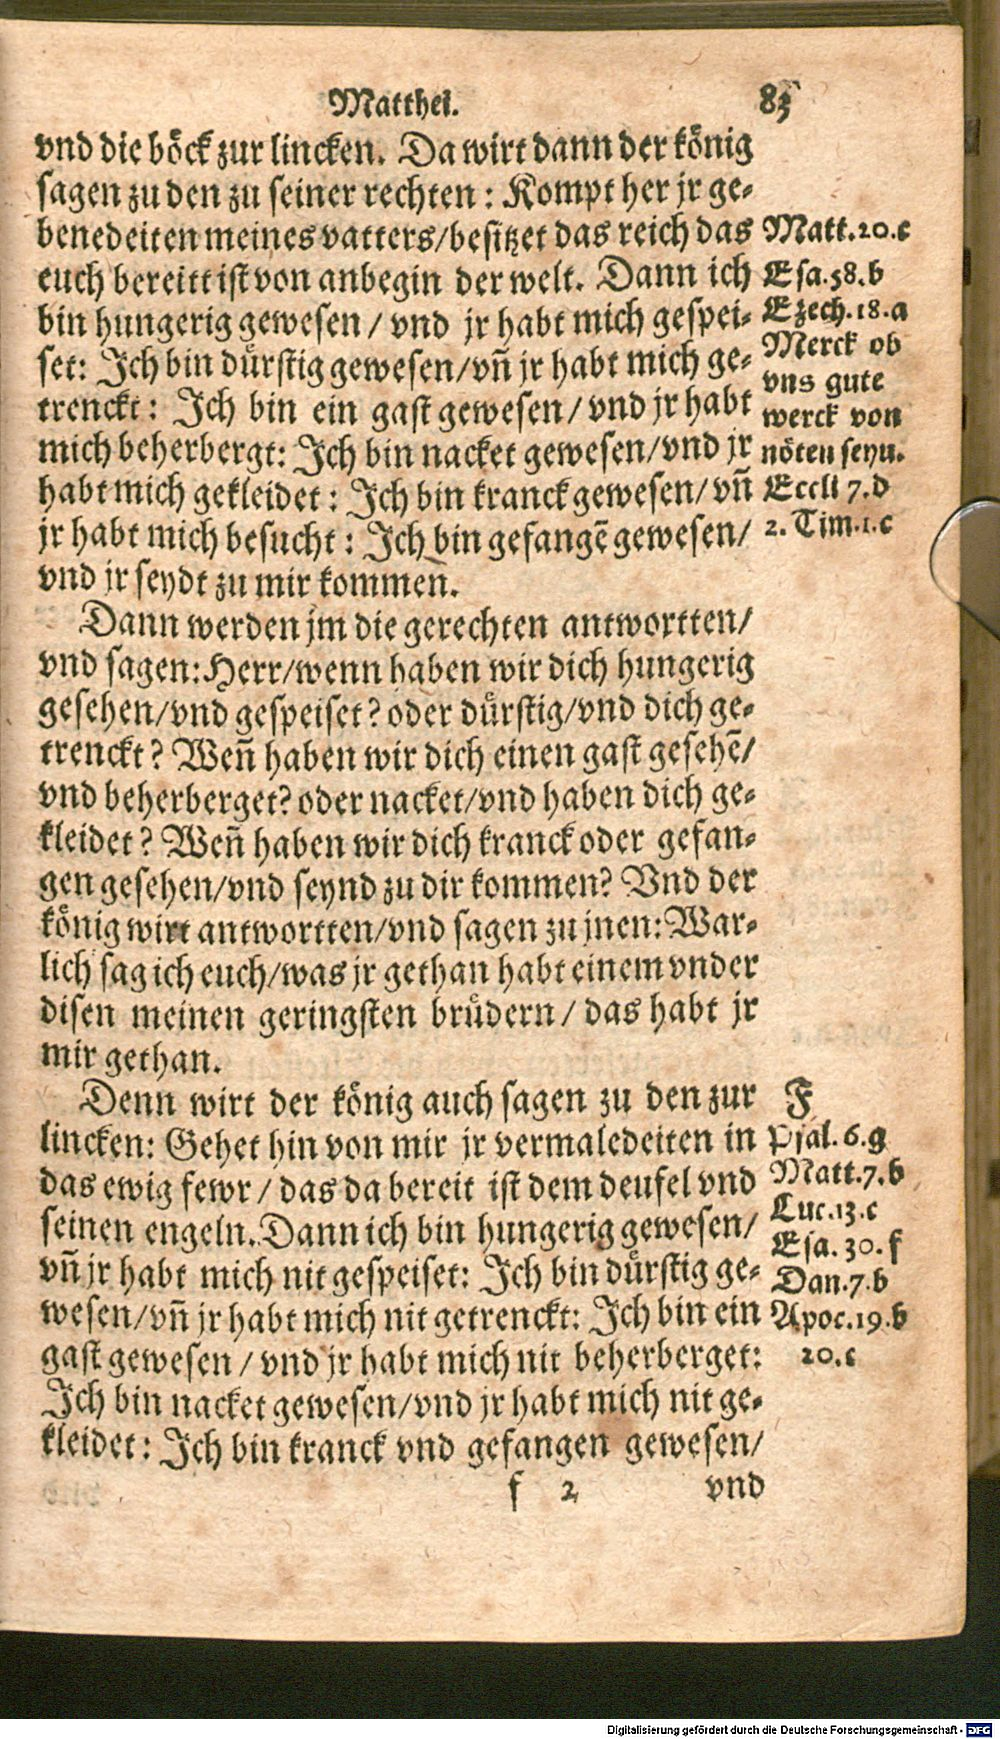 Matthei. 83
vnd die böck zur lincken. Da wirt dann der könig
sagen zu den zu seiner rechten: Kompt her jr ge⸗
benedeiten meines vatters/besitzet das reich das
euch bereitt ist von anbegin der welt. Dann ich
bin hungerig gewesen / vnd jr habt mich gespei⸗
set: Ich bin dürstig gewesen/vñ jr habt mich ge⸗
trenckt: Ich bin ein gast gewesen/ vnd jr habt
mich beherbergt: Ich bin nacket gewesen/vnd jr
habt mich gekleidet: Ich bin kranck gewesen/ vñ
jr habt mich besucht: Ich bin gefangẽ gewesen/
vnd jr seydt zu mir kommen.
Matt.20.c
Esa.58.b
Ezech.18.a
Merck ob
vns gute
werck von
nöten seyn.
Eccli 7.d
2. Tim.1.c
Dann werden jm die gerechten antwortten/
vnd sagen: Herr/wenn haben wir dich hungerig
gesehen/vnd gespeiset? oder dürstig/vnd dich ge⸗
trenckt? Weñ haben wir dich einen gast gesehẽ/
vnd beherberget? oder nacket/vnd haben dich ge⸗
kleidet? Weñ haben wir dich kranck oder gefan⸗
gen gesehen/vnd seynd zu dir kommen? Vnd der
könig wirt antwortten/vnd sagen zu jnen: War⸗
lich sag ich euch/was jr gethan habt einem vnder
disen meinen geringsten brüdern/ das habt jr
mir gethan.
Denn wirt der könig auch sagen zu den zur
lincken: Gehet hin von mir jr vermaledeiten in
das ewig fewr / das da bereit ist dem deufel vnd
seinen engeln. Dann ich bin hungerig gewesen/
vñ jr habt mich nit gespeiset: Ich bin dürstig ge⸗
wesen/vñ jr habt mich nit getrenckt: Ich bin ein
gast gewesen / vnd jr habt mich nit beherberget:
Ich bin nacket gewesen/vnd jr habt mich nit ge⸗
kleidet: Ich bin kranck vnd gefangen gewesen/
F
Psal. 6.g
Matt.7.b
Luc.13.c
Esa. 30. f
Dan.7.b
Apoc.19.b
20.c
f 2 vnd
Digitalisierung gefördert durch die Deutsche Forschungsgemeinschaft - DFG